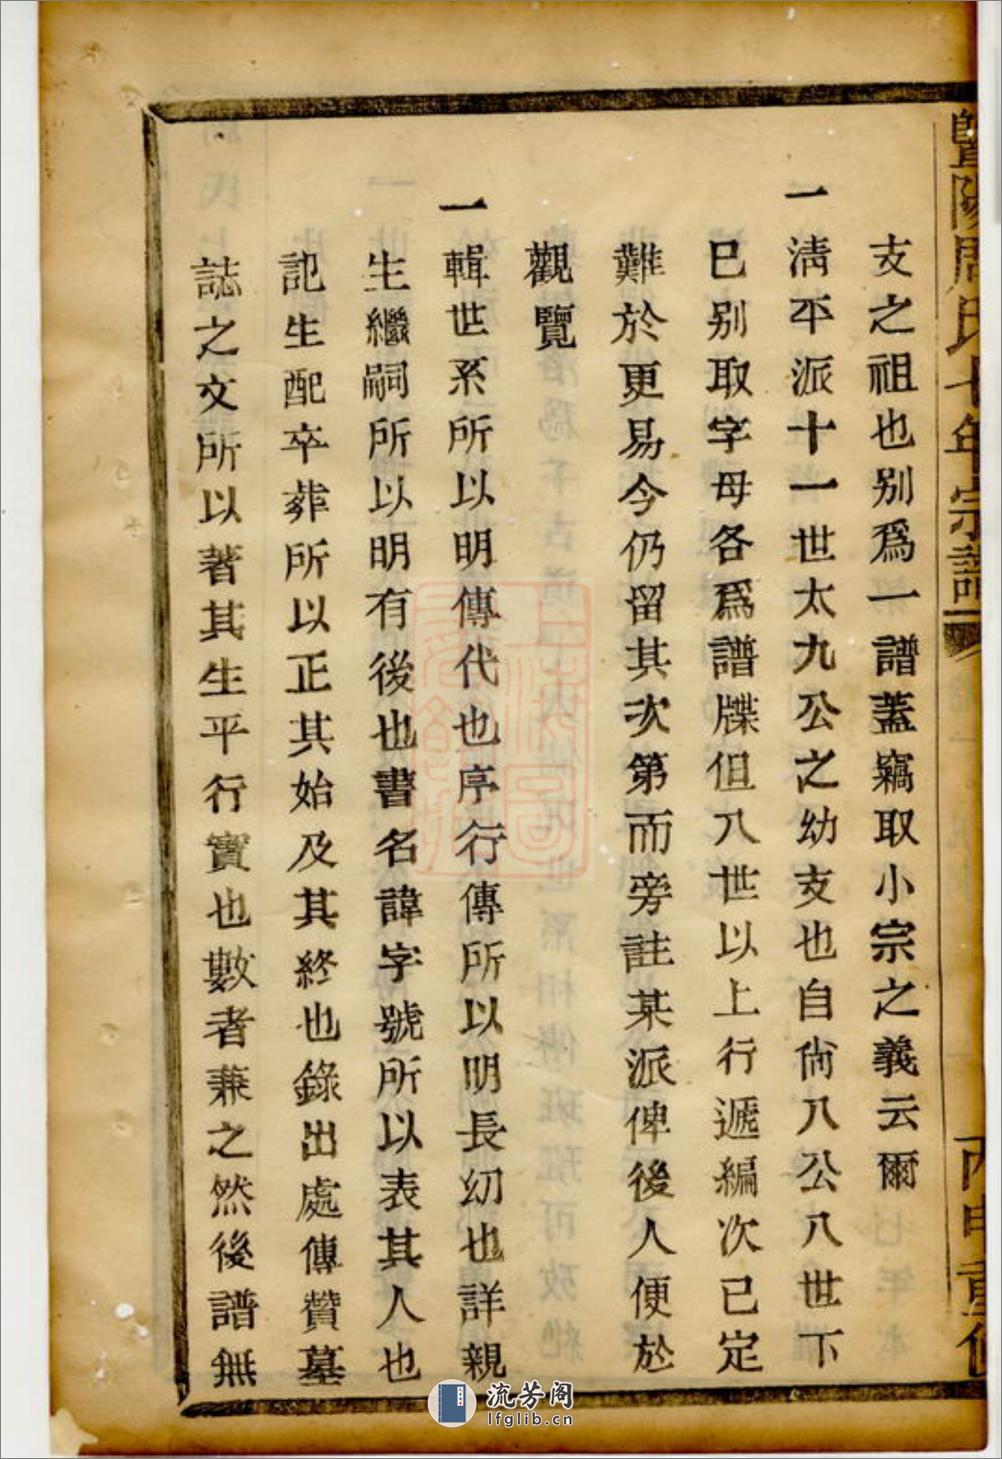 暨陽周氏七年宗譜 丙申重修
支之祖也別爲一譜蓋竊取小宗之義云爾
一淸平派十一世太九公之幼支也自尙八公八世下
已別取字母各爲譜牒但八世以上行遞編次已定
難於更易今仍留其次第而旁註某派俾後人便於
觀覽
一輯世系所以明傳代也序行傳所以明長幼也詳親
生繼嗣所以明有後也書名諱字號所以表其人也
記生配卒葬所以正其始及其終也錄出處傳贊墓
誌之文所以著其生平行實也數者兼之然後譜無
流芳阁
lfglib.cn